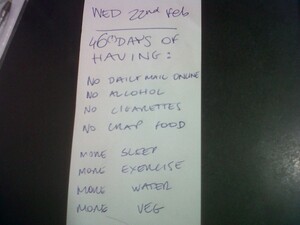 WED 22nd Feb
46(!) DAYS OF
HAVING:
NO DAILY MAIL ONLINE
NO ALCOHOL
NO CIGARETTES
NO CRAP FOOD
MORE SLEEP
MORE EXERCISE
MORE WATER
MORE VEG